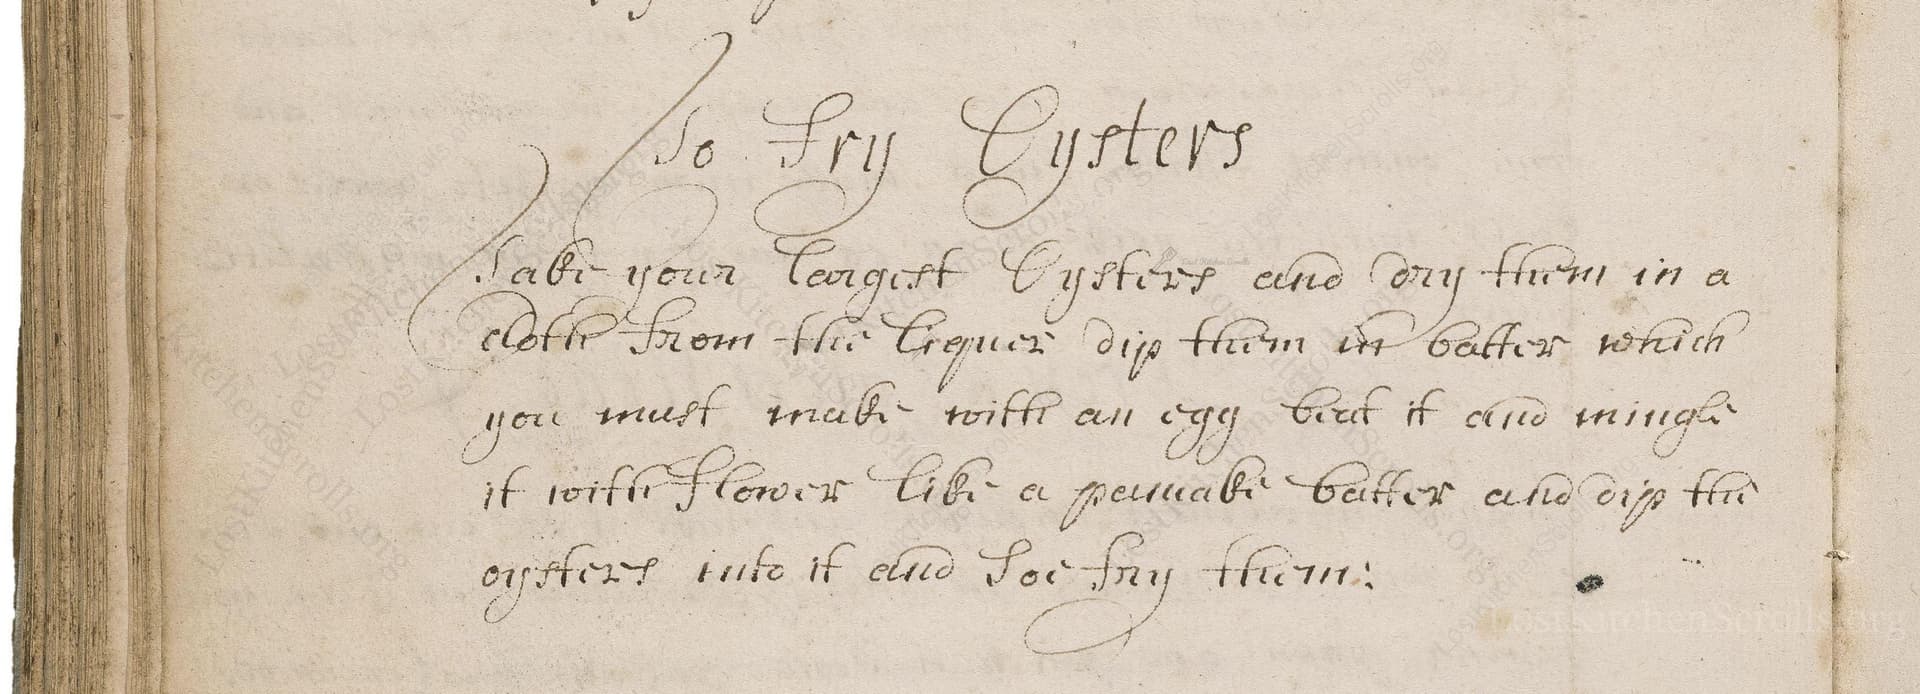 To Fry Oysters
Take your largest Oysters and dry them in a
cloth from the liquer dip them in batter which
you must make with an egg beat it and mingle
it with flower like a pancake batter and dip the
oysters into it and soe fry them:
LostKitchenScrolls.org